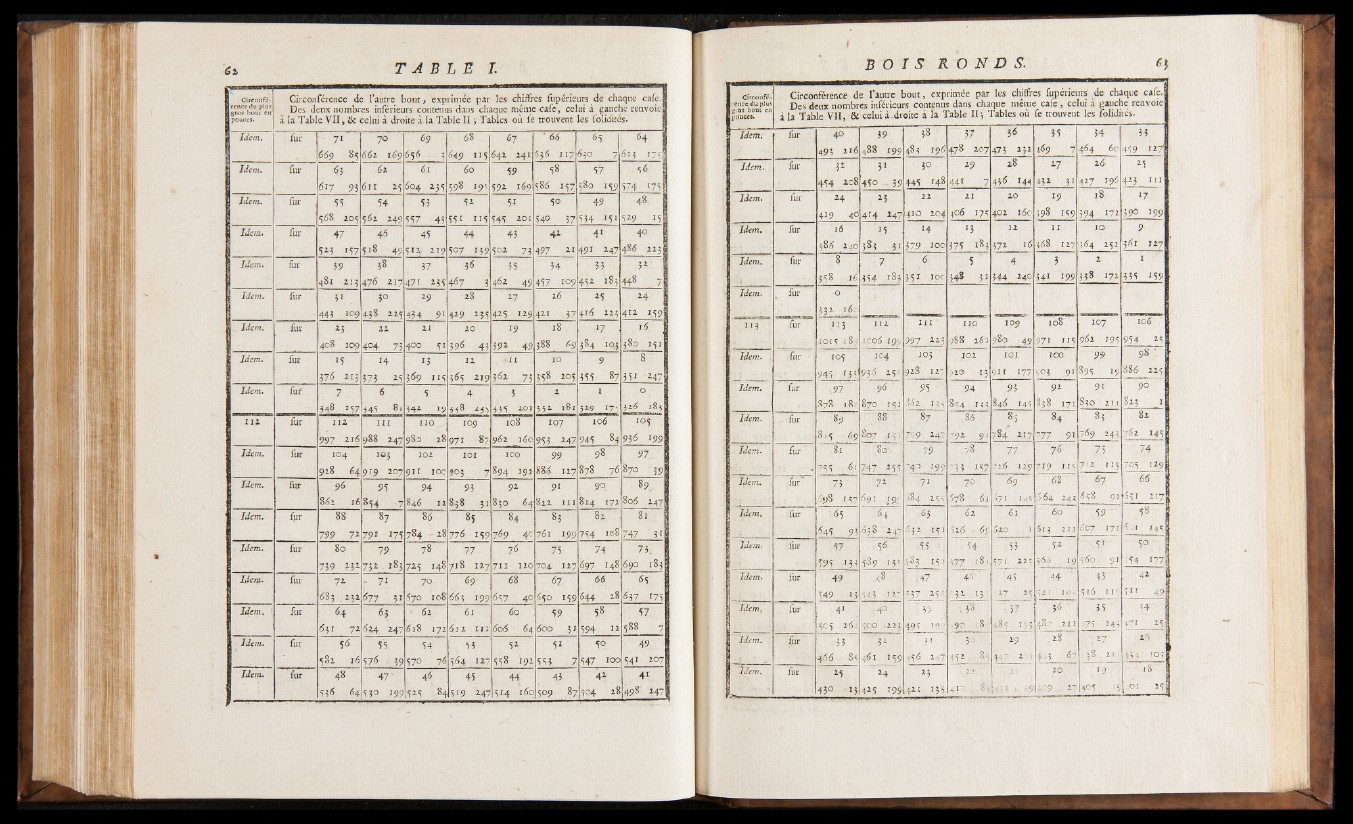 62 TABLE I.
Circonférence du plus gros bout en pouces.
Circonférence de l'autre bout, exprimée par les chiffres ſupérieurs de chaque caſe.
Des deux nombres inférieurs contenus dans chaque même caſe, celui à gauche renvoie
à la Table VII, & celui à droite à la Table II; Tables où ſe trouvent les ſolidités.
Idem. ſur 71 70 69 68 67 66 65 64
669 85 662 169 656 3 649 115 642 241 636 117 630 7 623 175
Idem. ſur 63 62 61 60 59 58 57 56
617 93 611 25 604 235 598 195 592 169 586 157 580 159 574 175
Idem. ſur 55 54 53 52 51 50 49 48
568 205 562 249 557 43 551 115 545 201 540 37 534 151 529 15
Idem. ſur 47 46 45 44 43 42 41 40
523 157 518 49 512 219 507 139 502 73 497 21 491 247 486 223
Idem. ſur 39 38 37 36 35 34 33 32
481 213 476 217 471 235 467 3 462 49 457 109 452 183 448 7
Idem. ſur 31 30 29 28 27 26 25 24
443 109 438 225 434 91 429 235 425 129 421 37 416 223 412 159
Idem. ſur 23 22 21 20 19 18 17 16
408 109 404 73 400 51 396 43 392 49 388 69 384 103 380 151
Idem. ſur 15 14 13 12 11 10 9 8
376 213 373 25 369 115 365 219 362 73 358 205 355 87 351 247
Idem. ſur 7 6 5 4 3 2 1 0
348 157 345 81 342 19 338 235 335 201 332 181 329 17 326 183
112 ſur 112 111 110 109 108 107 106 105
997 216 988 247 980 28 971 87 962 160 953 247 945 84 936 199
Idem. ſur 104 103 102 101 100 99 98 97
928 64 919 207 911 100 903 7 894 192 886 127 878 76 870 39
Idem. ſur 96 95 94 93 92 91 90 89
862 16 854 7 846 12 838 31 830 64 822 111 814 172 806 247
Idem. ſur 88 87 86 85 84 83 82 81
799 72 791 175 784 28 776 159 769 40 761 199 754 108 747 31
Idem. ſur 80 79 78 77 76 75 74 73
739 232 732 183 725 148 718 127 711 120 704 127 697 148 690 183
Idem. ſur 72 71 70 69 68 67 66 65
683 232 677 31 670 108 663 199 657 40 650 159 644 28 637 175
Idem. ſur 64 63 62 61 60 59 58 57
631 72 624 247 618 172 612 111 606 64 600 31 594 12 588 7
Idem. ſur 56 55 54 53 52 51 50 49
582 16 576 39 570 76 564 127 558 192 553 7 547 100 541 207
Idem. ſur 48 47 46 45 44 43 42 41
536 64 530 199 525 84 519 247 514 160 509 87 504 28 498 247
BOIS RONDS. 63
Circonférence du plus gros bout en pouces.
Circonférence de l'autre bout, exprimée par les chiffres ſupérieurs de chaque caſe.
Des deux nombres inférieurs contenus dans chaque même caſe, celui à gauche renvoie
à la Table VII, & celui à droite à la Table II; Tables où ſe trouvent les ſolidités.
Idem. ſur 40 39 38 37 36 35 34 33
493 216 488 199 483 196 478 207 473 232 469 7 464 60 459 127
Idem. ſur 32 31 30 29 28 27 26 25
454 208 450 39 445 148 441 7 436 144 432 31 427 196 423 111
Idem. ſur 24 23 22 21 20 19 18 17
419 40 414 247 410 204 406 175 402 160 398 159 394 172 390 199
Idem. ſur 16 15 14 13 12 11 10 9
386 240 383 31 379 100 375 183 372 16 368 127 364 252 361 127
Idem. ſur 8 7 6 5 4 3 2 1
358 16 354 183 351 100 348 31 344 240 341 199 338 172 335 159
Idem. ſur 0
332 160
113 ſur 113 112 111 110 109 108 107 106
1015 18 1006 199 997 223 988 261 980 49 971 115 962 195 954 25
Idem. ſur 105 104 103 102 101 100 99 98
945 131 936 255 928 127 920 13 911 177 903 91 895 19 886 225
Idem. ſur 97 96 95 94 93 92 91 90
878 181 870 151 862 135 854 133 846 145 838 171 830 211 823 1
Idem. ſur 89 88 87 86 85 84 83 82
815 69 807 151 799 247 792 91 784 217 777 91 769 243 762 145
Idem. ſur 81 80 79 78 77 76 75 74
755 61 747 255 740 199 733 157 726 129 719 115 712 115 705 129
Idem. ſur 73 72 71 70 69 68 67 66
698 157 691 199 684 255 678 61 671 145 664 243 658 91 651 217
Idem. ſur 65 64 63 62 61 60 59 58
645 91 638 247 632 151 626 69 620 1 613 211 607 171 601 145
Idem. ſur 57 56 55 54 53 52 51 50
595 133 589 135 583 151 577 181 571 225 566 19 560 91 554 177
Idem. ſur 49 48 47 46 45 44 43 42
549 13 543 127 537 255 532 13 527 25 516 115 511 49
Idem. ſur 41 40 39 38 37 36 35 34
505 261 500 223 495 490 18 485 193 480 211 475 243 471 25
Idem. ſur 33 32 31 30 29 28 27 26
466 85 461 159 456 247 452 85 447 443 67 438 434 103
Idem. ſur 25 24 23 20 19 18
430 13 425 199 421 135 417 409 27 405 401 25